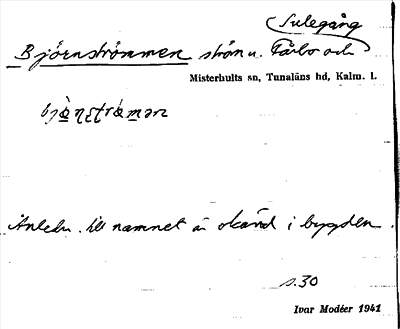 Sulegång
Björnströmmen ström u. Fårbo och
Misterhults sn, Tunaläns hd, Kalm. l.
Anledn. till namnet är okänd i bygden.
s. 30
Ivar Modéer 1941